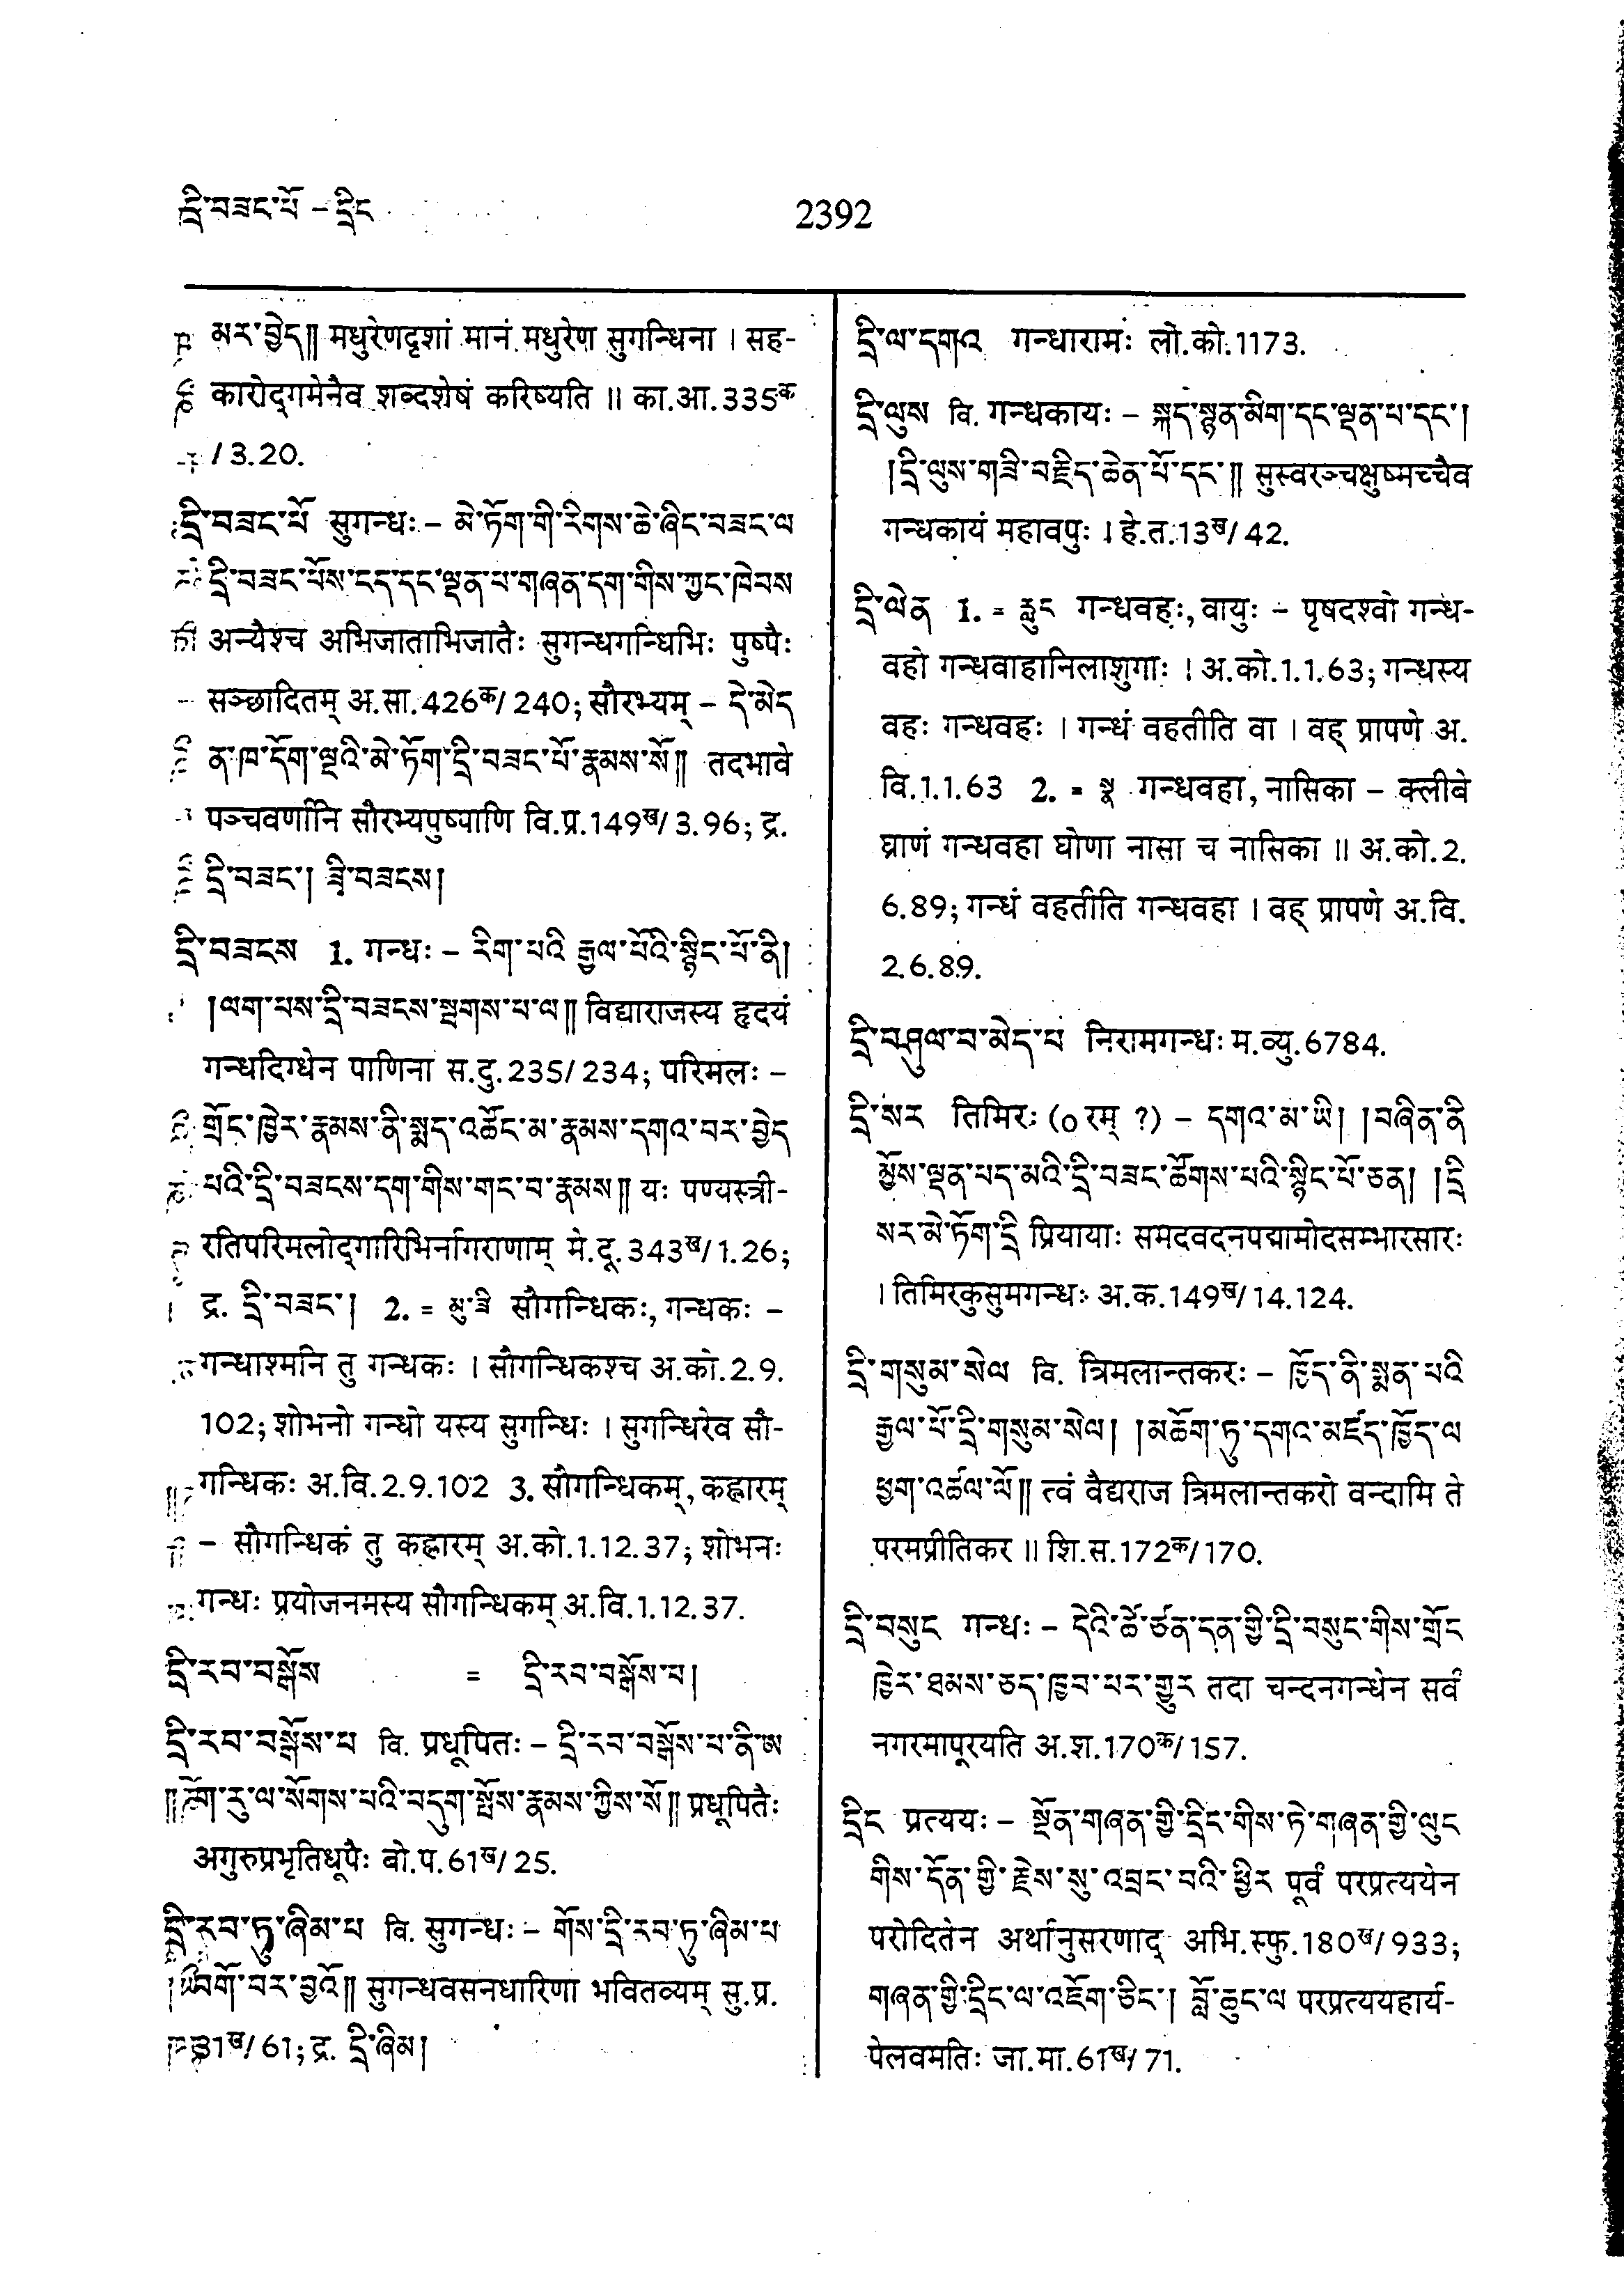 དྲི་བཟང་པོ – དྲིང
2392
མར་བྱེད།། मधुरेणदृशां मानं मधुरेण सुगन्धिना । सह-
कारोद्गमेनैव शब्दशेषं करिष्यति ॥ का.आ.335क
/3.20.
དྲི་བཟང་པོ सुगन्धः – མེ་ཏོག་གི་རིགས་ཆེ་ཞིང་བཟང་ལ
དྲི་བཟང་པོས་ངད་དང་ལྡན་པ་གཞན་དག་གིས་ཀྱང་ཁེབས
अन्यैश्च अभिजाताभिजातैः सुगन्धगन्धिभिः पुष्पैः
सञ्छादितम् अ.सा.426क/240; सौरभ्यम् – དེ་མེད
ན་ཁ་དོག་ལྔའི་མེ་ཏོག་དྲི་བཟང་པོ་རྣམས་སོ།། तदभावे
पञ्चवर्णानि सौरभ्यपुष्पाणि वि.प्र.149ख/3.96; द्र.
དྲི་བཟང་། དྲི་བཟངས།
དྲི་བཟངས 1. गन्धः – རིག་པའི་རྒྱལ་པོའི་སྙིང་པོ་ནི།
།ལག་པས་དྲི་བཟངས་སྦགས་པ་ལ།། विद्याराजस्य हृदयं
गन्धदिग्धेन पाणिना स.दु.235/234; परिमलः –
གྲོང་ཁྱེར་རྣམས་ནི་སྨད་འཚོང་མ་རྣམས་དགའ་བར་བྱེད
པའི་དྲི་བཟངས་དག་གིས་གང་བ་རྣམས།། यः पण्यस्त्री-
रतिपरिमलोद्गारिभिर्नागराणाम् मे.दू.343ख/1.26;
द्र. དྲི་བཟང་། 2. = མུ་ཟི सौगन्धिकः, गन्धकः –
गन्धाश्मनि तु गन्धकः । सौगन्धिकश्च अ.को.2.9.
102; शोभनो गन्धो यस्य सुगन्धिः । सुगन्धिरेव सौ-
गन्धिकः अ.वि.2.9.102 3. सौगन्धिकम्, कह्लारम्
– सौगन्धिकं तु कह्लारम् अ.को.1.12.37; शोभनः
गन्धः प्रयोजनमस्य सौगन्धिकम् अ.वि.1.12.37.
དྲི་རབ་བསྒོས = དྲི་རབ་བསྒོས་པ།
དྲི་རབ་བསྒོས་པ वि. प्रधूपितः – དྲི་རབ་བསྒོས་པ་ནི་ཨ
ཀོག་རུ་ལ་སོགས་པའི་བདུག་སྤོས་རྣམས་ཀྱིས་སོ།། प्रधूपितैः
अगुरुप्रभृतिधूपैः बो.प.61ख/25.
དྲི་རབ་ཏུ་ཞིམ་པ वि. सुगन्धः – གོས་དྲི་རབ་ཏུ་ཞིམ་པ
བགོ་བར་བྱའོ།། सुगन्धवसनधारिणा भवितव्यम् सु.प्र.
31ख/61; द्र. དྲི་ཞིམ།
དྲི་ལ་དགའ गन्धारामः लो.को.1173.
དྲི་ལུས वि. गन्धकायः – སྐད་སྙན་མིག་དང་ལྡན་པ་དང་།
།དྲི་ལུས་གཟི་བརྗིད་ཆེན་པོ་དང་།། सुस्वरञ्चक्षुष्मच्चैव
गन्धकायं महावपुः । हे.त.13ख/42.
དྲི་ལེན 1. = རླུང गन्धवहः, वायुः – पृषदश्वो गन्ध-
वहो गन्धवाहानिलाशुगाः । अ.को.1.1.63; गन्धस्य
वहः गन्धवहः । गन्धं वहतीति वा । वह् प्रापणे अ.
वि.1.1.63 2. = སྣ गन्धवहा, नासिका – क्लीबे
घ्राणं गन्धवहा घोणा नासा च नासिका ॥ अ.को.2.
6.89; गन्धं वहतीति गन्धवहा । वह् प्रापणे अ.वि.
2.6.89.
དྲི་བཤུལ་བ་མེད་པ निरामगन्धः म.व्यु.6784.
དྲི་སར तिमिरः (० रम् ?) – དགའ་མ་ཡི། །བཞིན་ནི
མྱོས་ལྡན་པད་མའི་དྲི་བཟང་ཚོགས་པའི་སྙིང་པོ་ཅན། །དྲི
སར་མེ་ཏོག་དྲི प्रियायाः समदवदनपद्मामोदसम्भारसारः
। तिमिरकुसुमगन्धः अ.क.149ख/14.124.
དྲི་གསུམ་སེལ वि. त्रिमलान्तकरः – ཁྱོད་ནི་སྨན་པའི
རྒྱལ་པོ་དྲི་གསུམ་སེལ། །མཆོག་ཏུ་དགའ་མཛད་ཁྱོད་ལ
ཕྱག་འཚལ་ལོ།། त्वं वैद्यराज त्रिमलान्तकरो वन्दामि ते
परमप्रीतिकर ॥ शि.स.172क/170.
དྲི་བསུང गन्धः – དེའི་ཚེ་ཙན་དན་གྱི་དྲི་བསུང་གིས་གྲོང
ཁྱེར་ཐམས་ཅད་ཁྱབ་པར་གྱུར तदा चन्दनगन्धेन सर्वं
नगरमापूरयति अ.श.170क/157.
དྲིང प्रत्ययः – སྔོན་གཞན་གྱི་དྲིང་གིས་ཏེ་གཞན་གྱི་ལུང
གིས་དོན་གྱི་རྗེས་སུ་འབྲང་བའི་ཕྱིར पूर्वं परप्रत्ययेन
परोदितेन अर्थानुसरणाद् अभि.स्फु.180ख/933;
གཞན་གྱི་དྲིང་ལ་འཇོག་ཅིང་། བློ་ཆུང་ལ परप्रत्ययहार्य-
पेलवमतिः जा.मा.61ख/71.